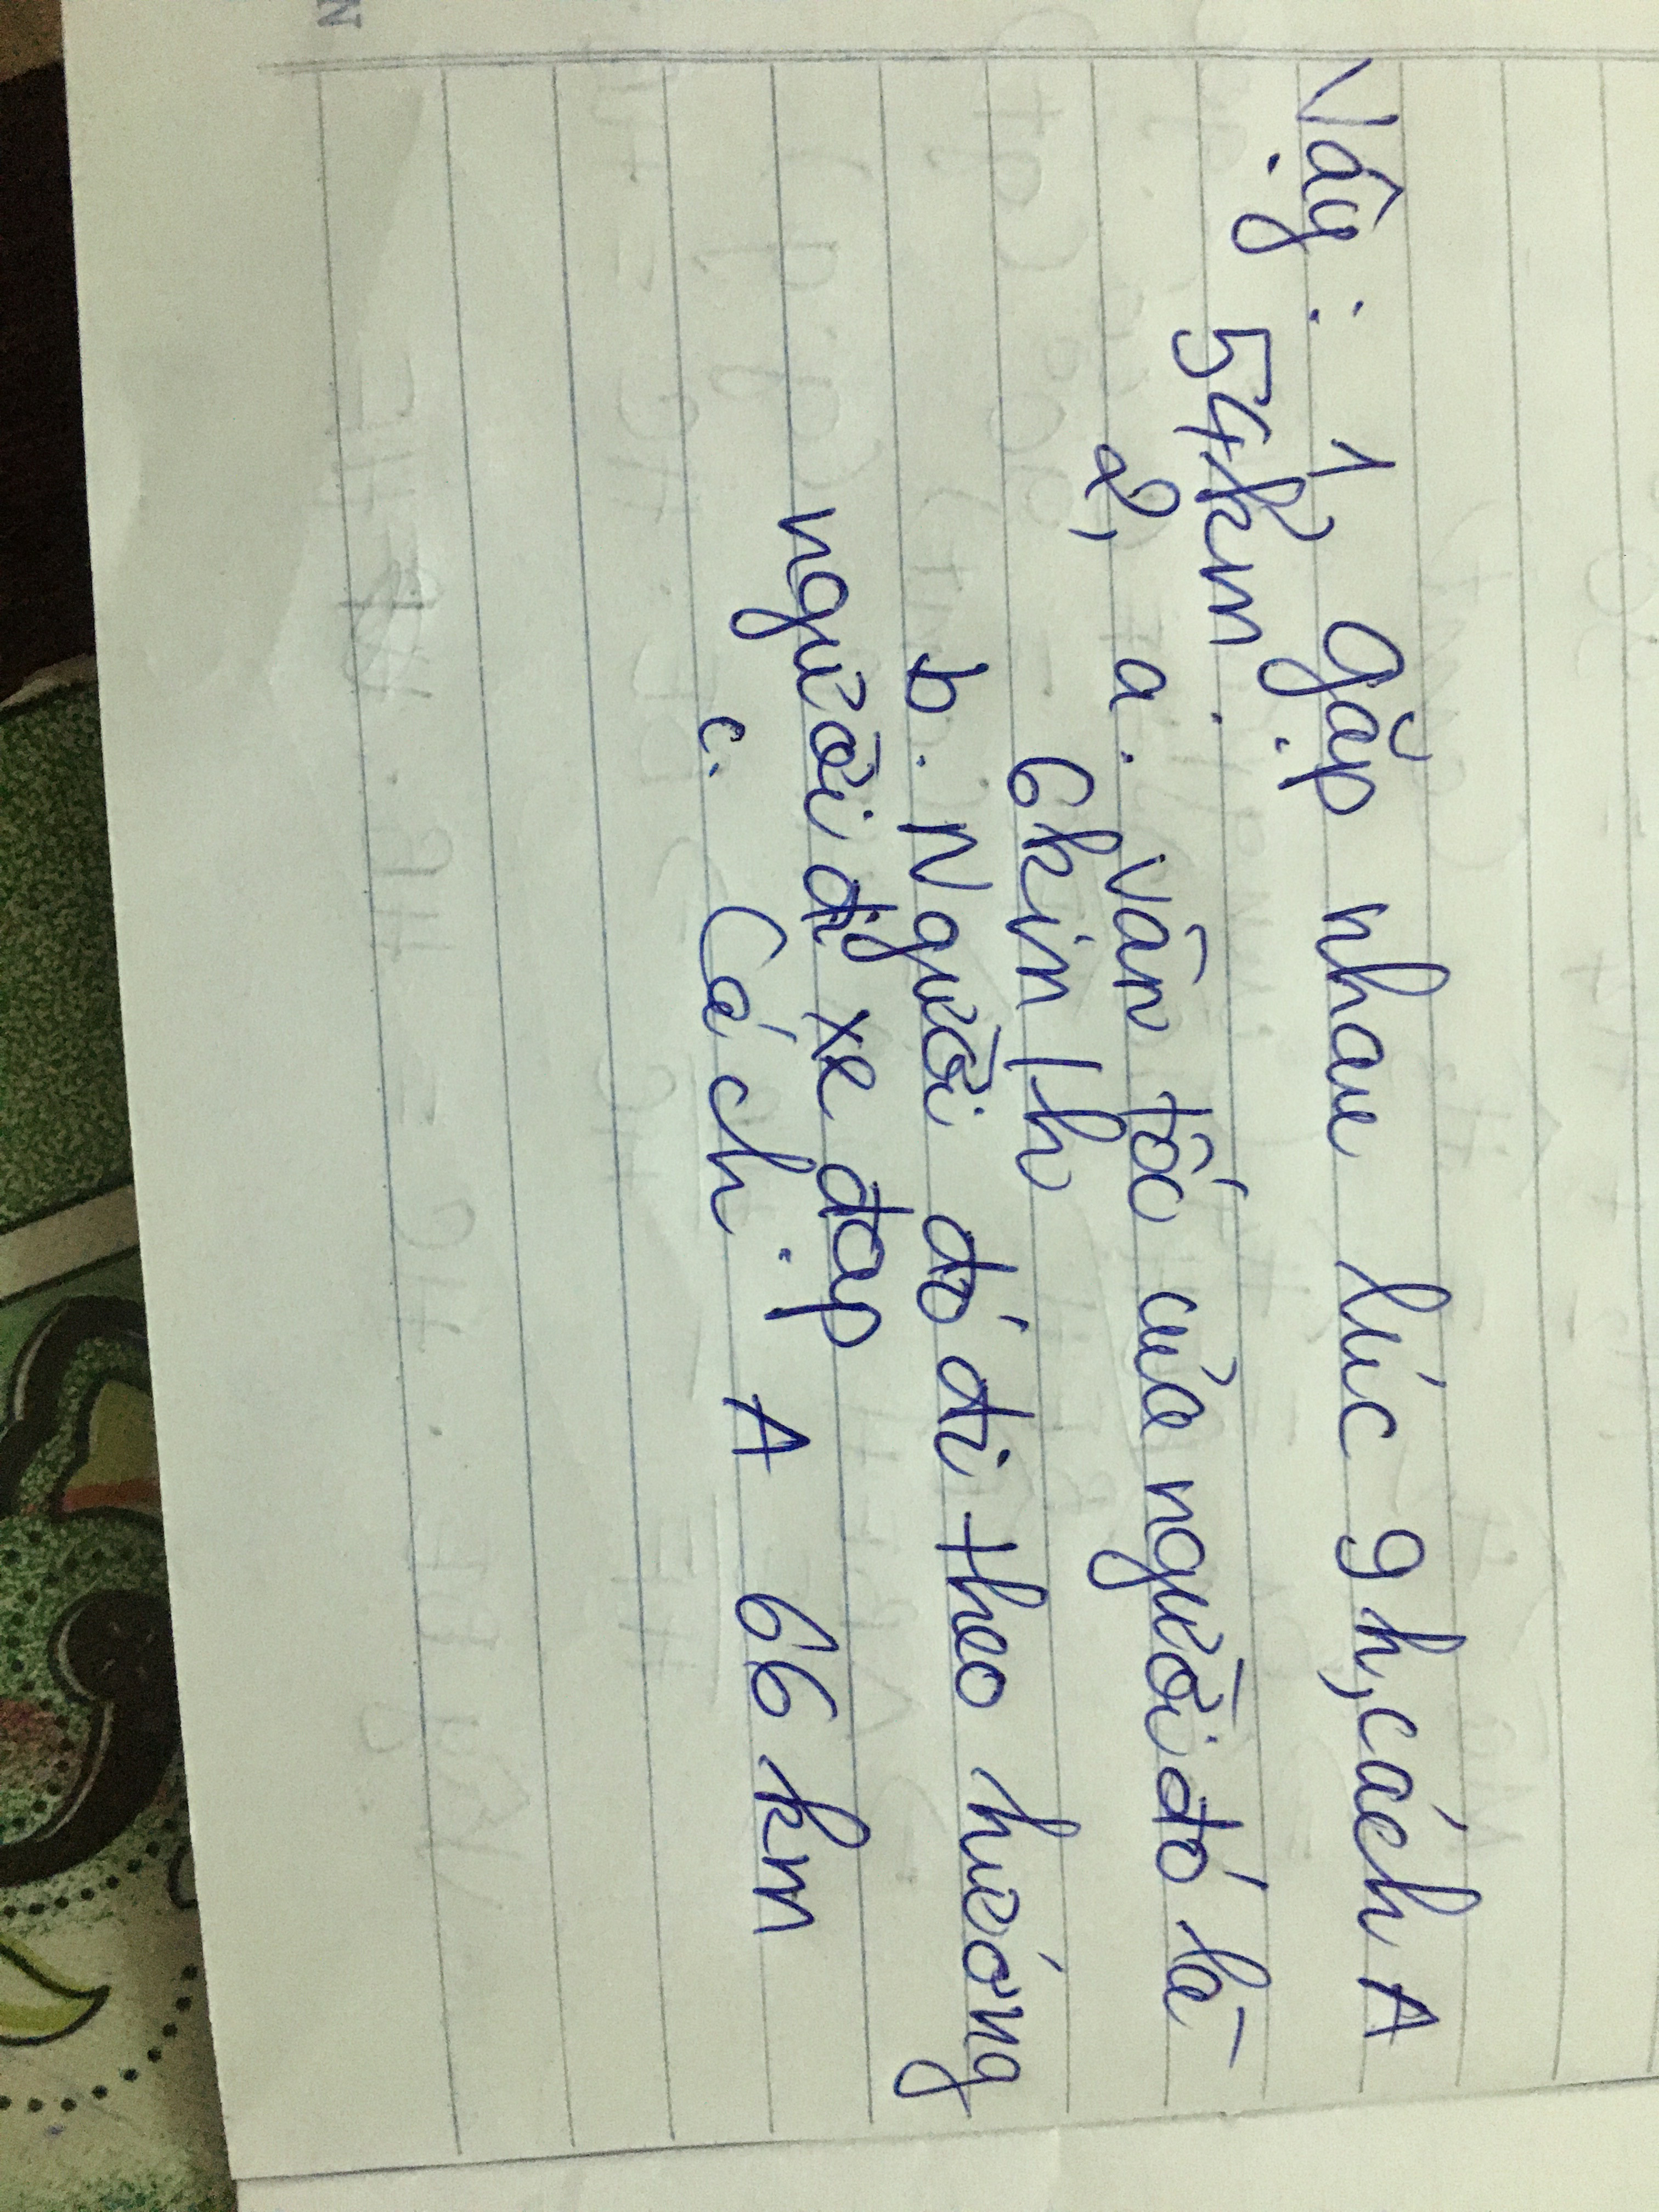 Vậy : 1 gặp nhau lúc 9h, cách A
54km.
2, a. Vân tốc của người đó là
6km/h
b. Người đó đi theo hướng
người đi xe đạp
c. Cách A 66km
N